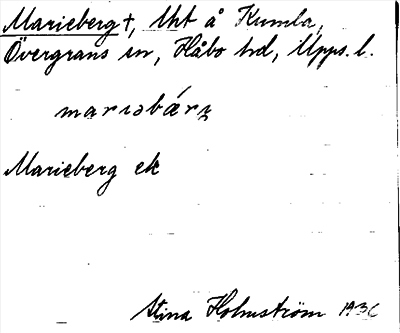 Marieberg †, lht å Kumla,
Övergrans sn, Håbo hd, Upps. l.
mariəbárj
Marieberg ek
Stina Holmström 1936